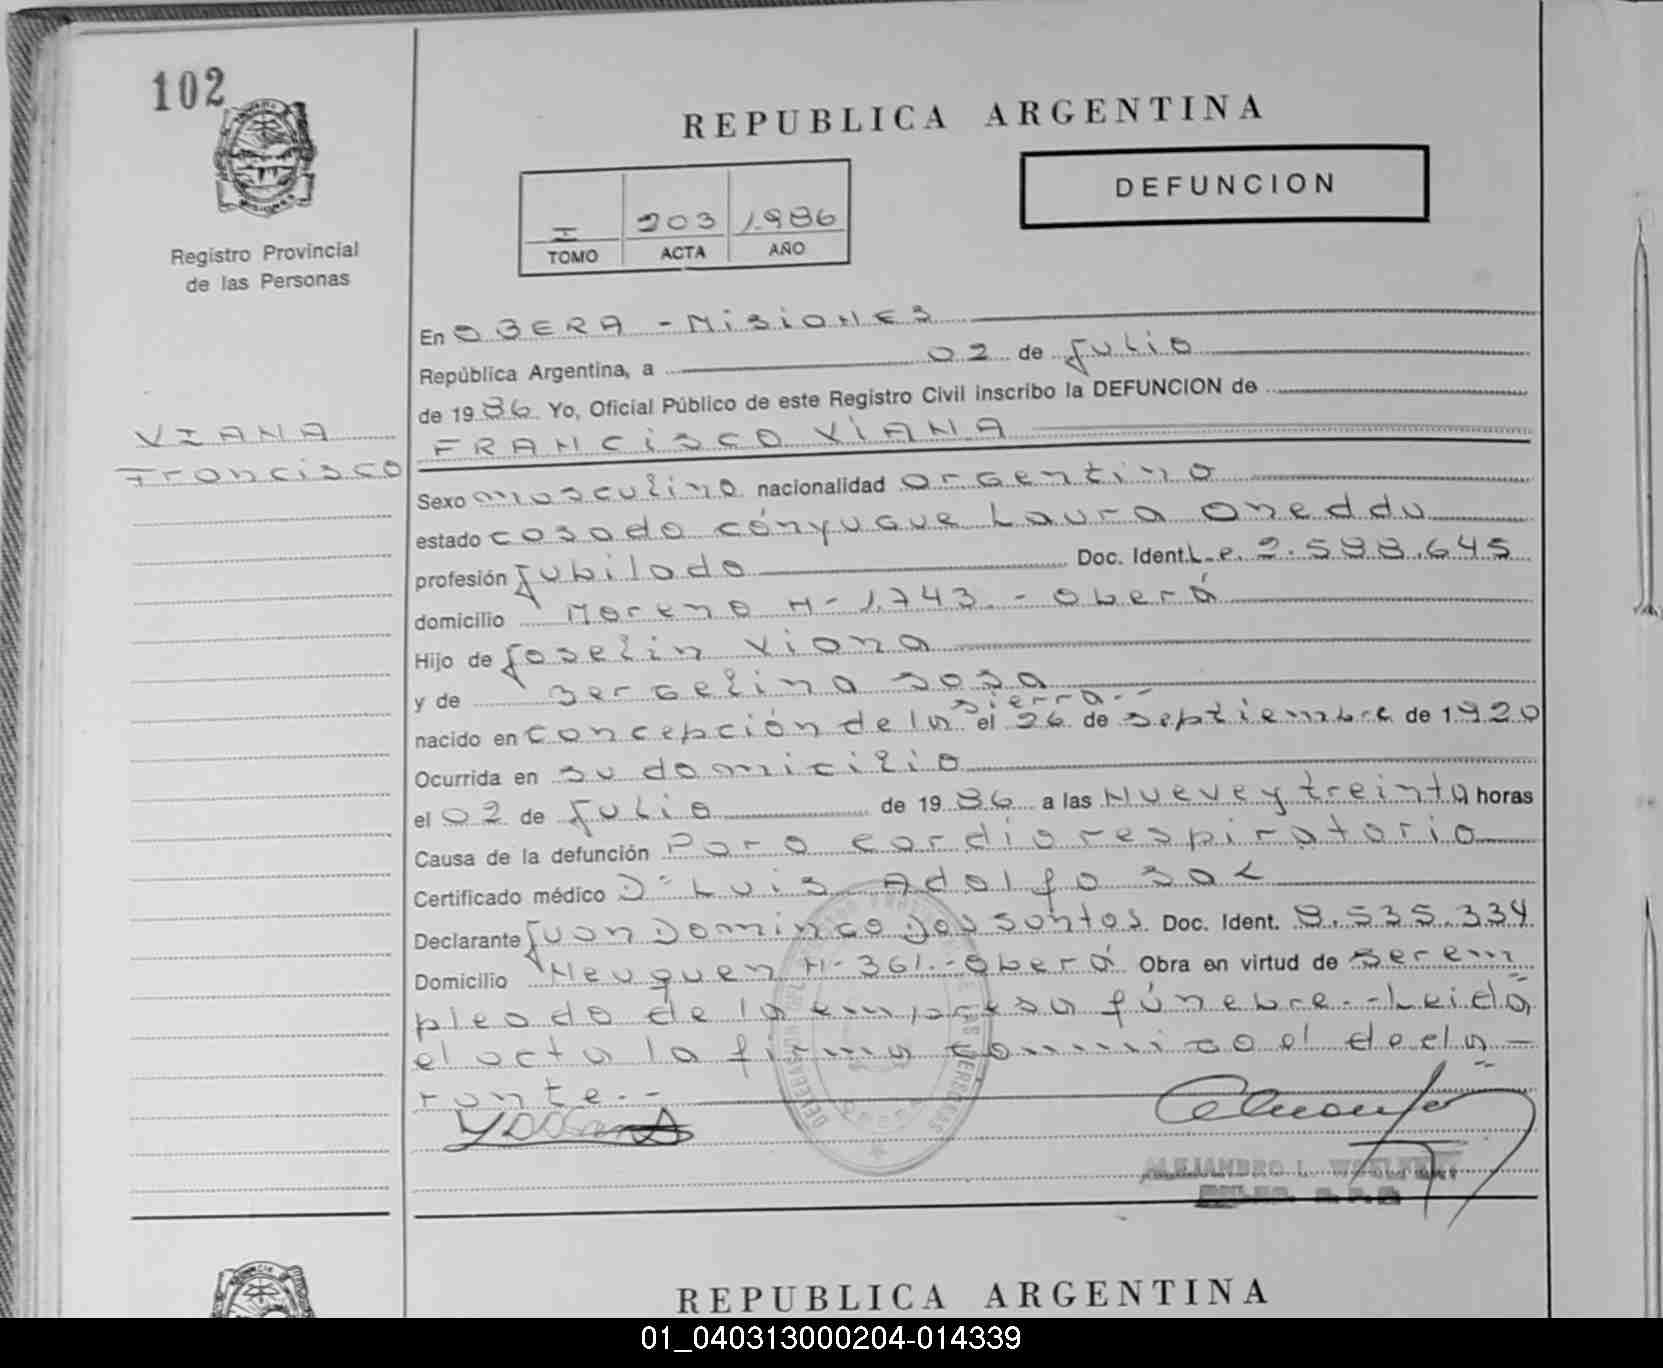 102
REPUBLICA ARGENTINA
DEFUNCION
I 203 1.986
TOMO ACTA AÑO
Registro Provincial
de las Personas
En OBERA - MisioNES
República Argentina, a 02 de Julio
de 1986 Yo, Oficial Público de este Registro Civil inscribo la DEFUNCION de
VIANA
Francisco
FRANCISCO VIANA
Sexo masculino nacionalidad argentina
estado casado cónyugue Laura Oneddu
profesión Jubilado Doc. Ident. L.e. 2.588.645
domicilio Moreno N- 1.743.- Oberá
Hijo de Joselin Viana
y de Bergelina Sosa
nacido en Concepción de la sierra.- el 26 de Septiembre de 1920
Ocurrida en su domicilio
el 02 de Julio de 1986 a las Nueve y treinta horas
Causa de la defunción Paro cardiorespiratorio
Certificado médico Dr Luis Adolfo
Declarante Juan Domingo Dos Santos. Doc. Ident. 8.535.334
Domicilio Neuquen N- 361.- Oberá Obra en virtud de ser em
pleado de la empresa fúnebre.- Leida
el acta la firma conmigo el decla-
rante.-
ALEJANDRO L.
REPUBLICA ARGENTINA
01_040313000204-014339